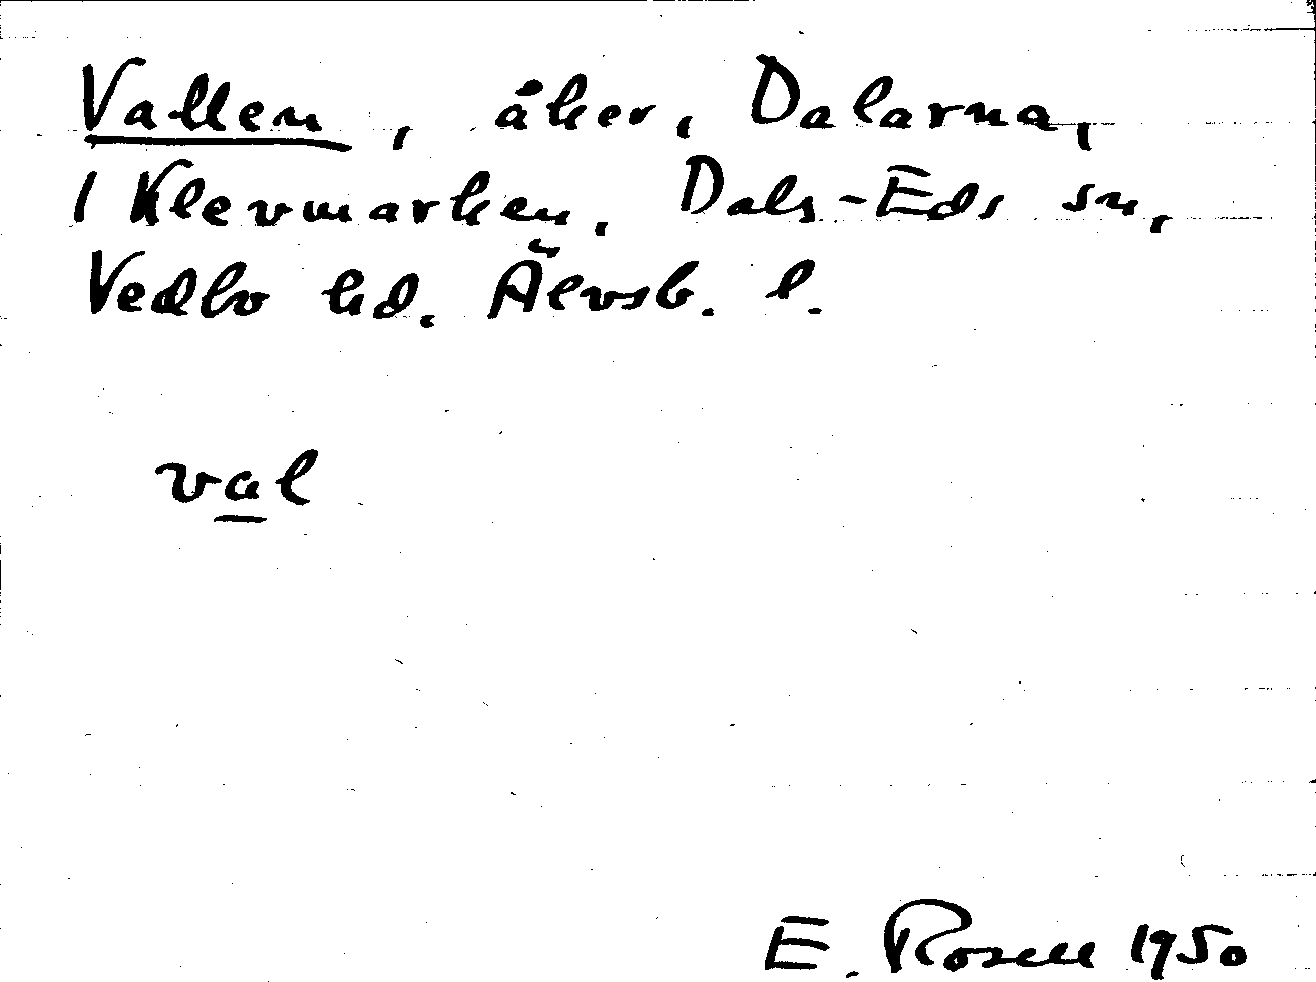 Vallen, åker, Dalarna,
1 Klevmarken, Dals-Eds sn,
Vedbo hd. Älvsb. l.
val
E. Rosell 1950